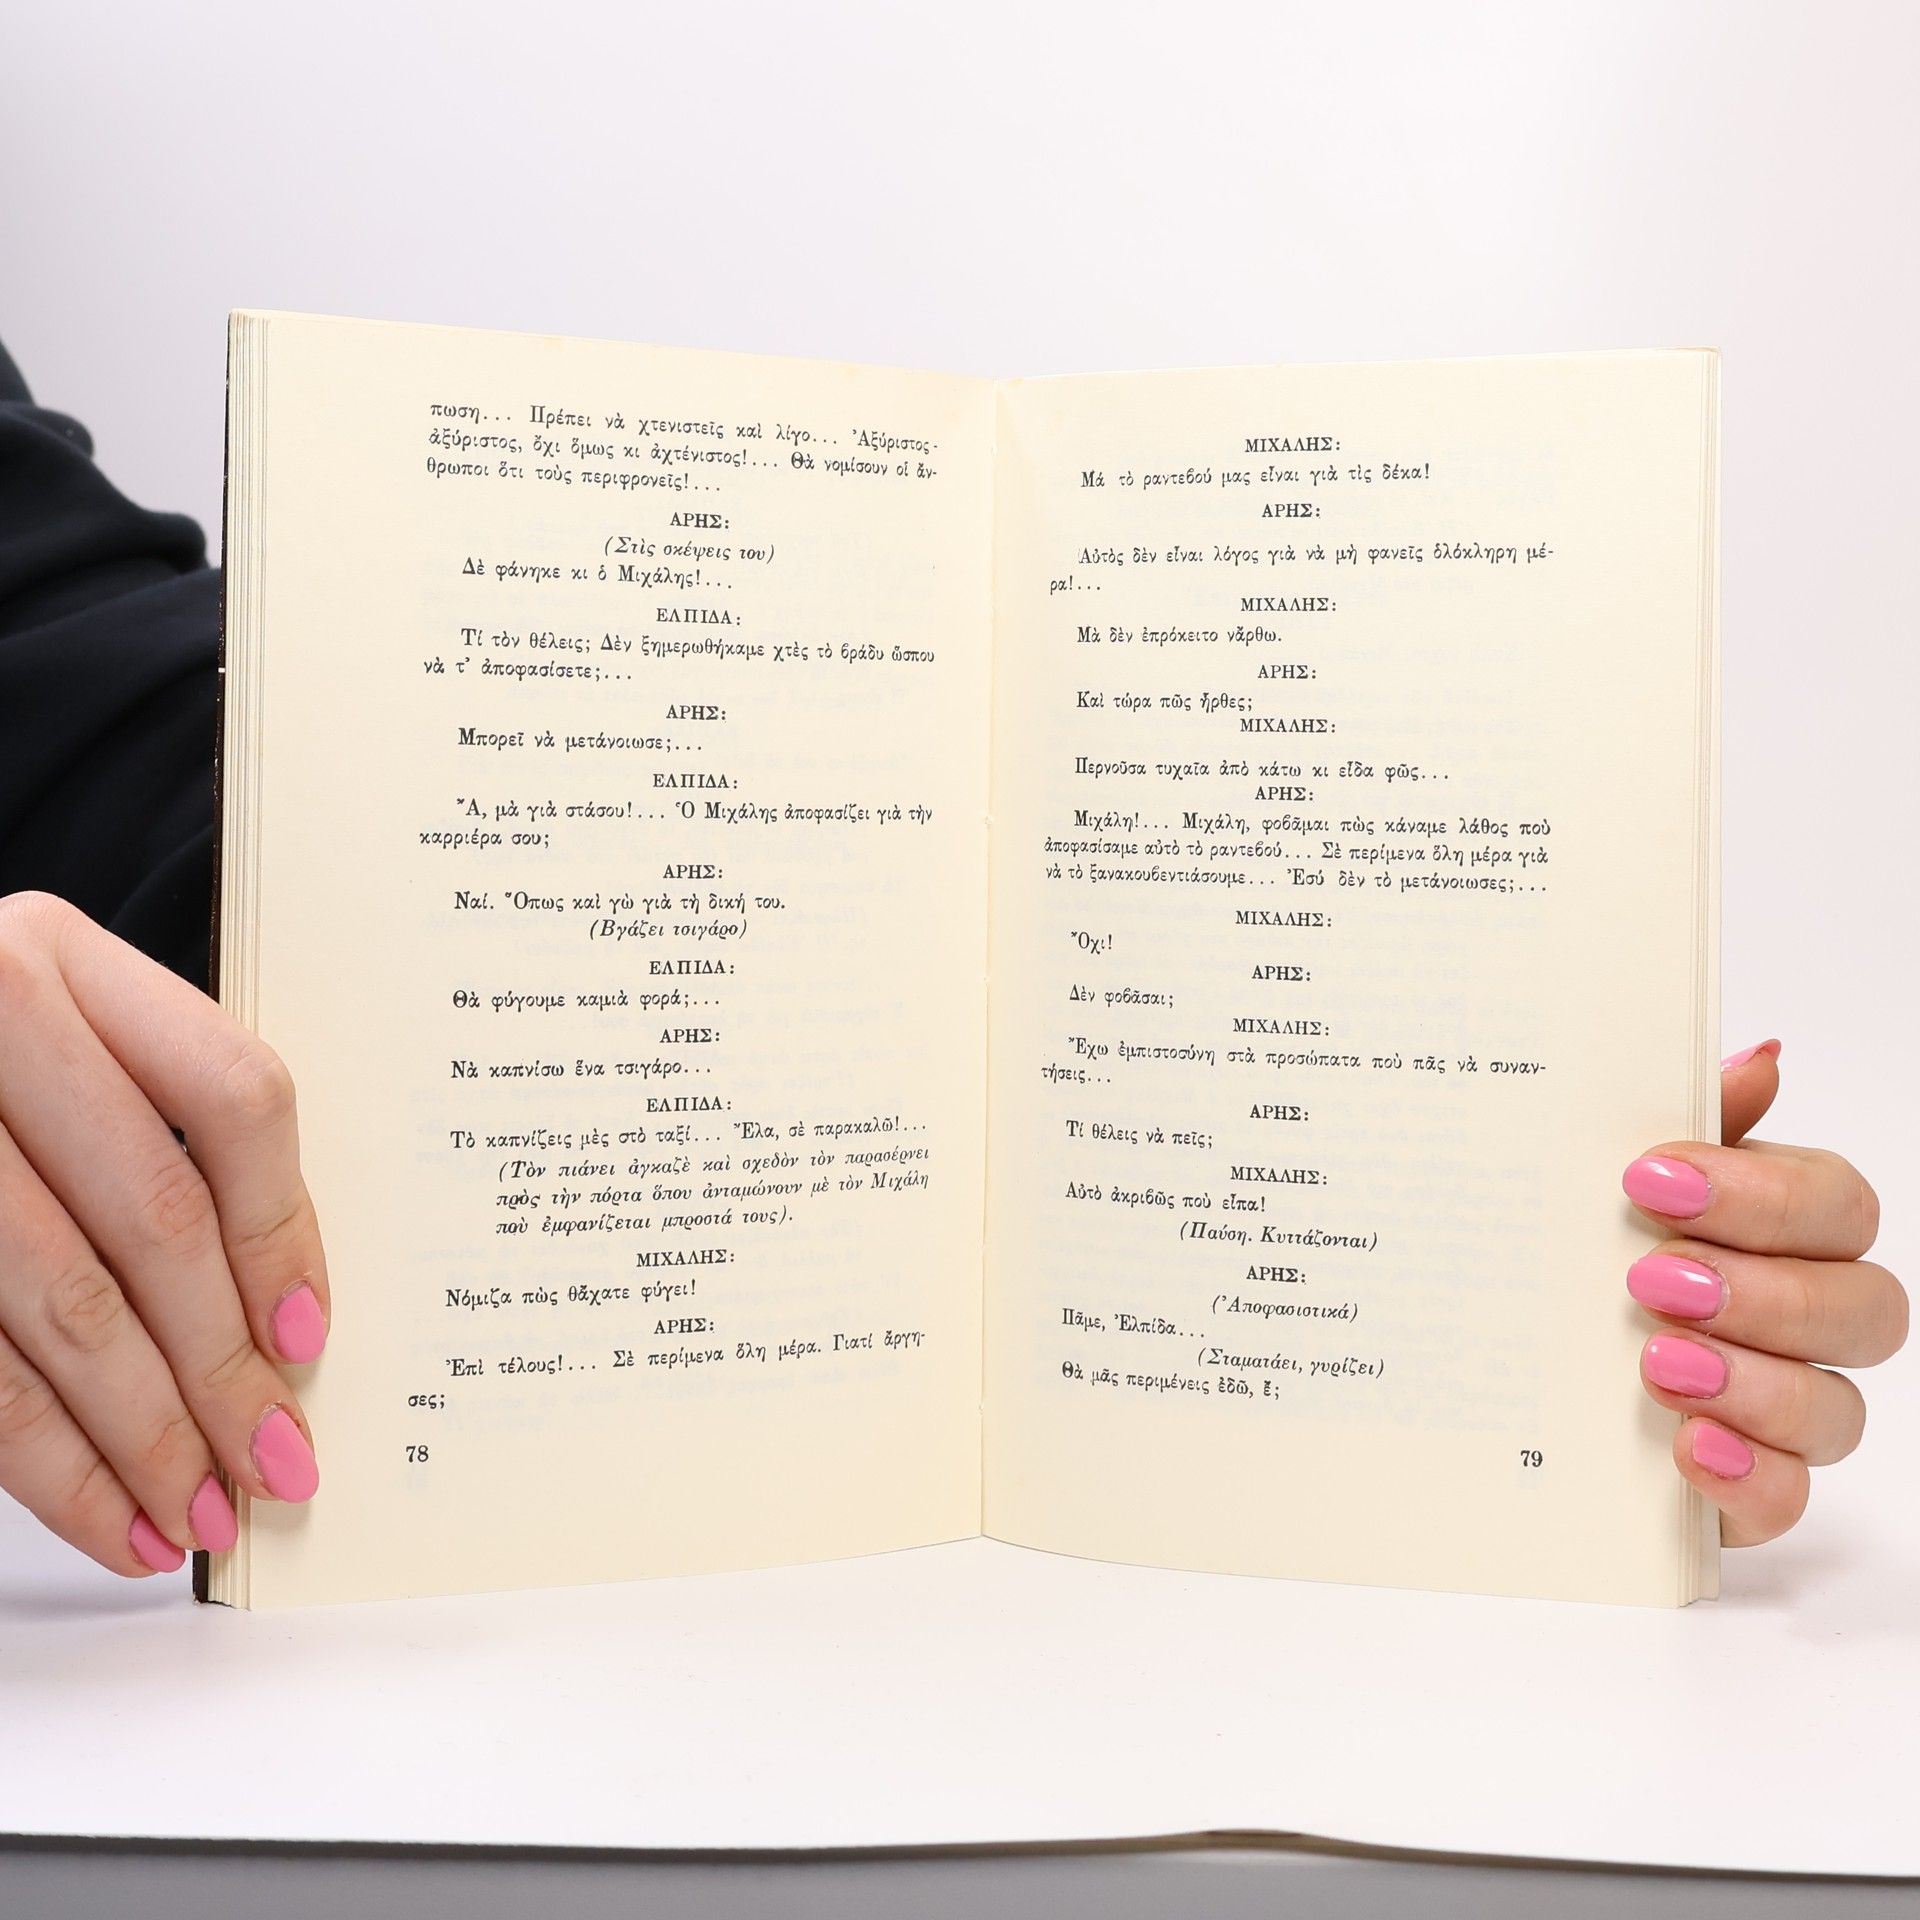 πωση... Πρέπει νὰ χτενιστεῖς καὶ λίγο... Ἀξύριστος-
ἀξύριστος, ὄχι ὅμως κι ἀχτένιστος!... Θὰ νομίσουν οἱ ἄν-
θρωποι ὅτι τοὺς περιφρονεῖς!...
ΑΡΗΣ:
(Στὶς σκέψεις του)
Δὲ φάνηκε κι ὁ Μιχάλης!...
ΕΛΠΙΔΑ:
Τί τὸν θέλεις; Δὲν ξημερωθήκαμε χτὲς τὸ βράδυ ὥσπου
νὰ τ' ἀποφασίσετε;...
ΑΡΗΣ:
Μπορεῖ νὰ μετάνοιωσε;...
ΕΛΠΙΔΑ:
Ἄ, μὰ γιὰ στάσου!... Ὁ Μιχάλης ἀποφασίζει γιὰ τὴν
καρριέρα σου;
ΑΡΗΣ:
Ναί. Ὅπως καὶ γὼ γιὰ τὴ δική του.
(Βγάζει τσιγάρο)
ΕΛΠΙΔΑ:
Θὰ φύγουμε καμιὰ φορά;...
ΑΡΗΣ:
Νὰ καπνίσω ἕνα τσιγάρο...
ΕΛΠΙΔΑ:
Τὸ καπνίζεις μὲς στὸ ταξί... Ἔλα, σὲ παρακαλῶ!...
(Τὸν πιάνει ἀγκαζὲ καὶ σχεδὸν τὸν παρασέρνει
πρὸς τὴν πόρτα ὅπου ἀνταμώνουν μὲ τὸν Μιχάλη
ποὺ ἐμφανίζεται μπροστά τους).
ΜΙΧΑΛΗΣ:
Νόμιζα πὼς θἄχατε φύγει!
ΑΡΗΣ:
Ἐπὶ τέλους!... Σὲ περίμενα ὅλη μέρα. Γιατί ἄργη-
σες;
78
ΜΙΧΑΛΗΣ:
Μά τὸ ραντεβού μας εἶναι γιὰ τὶς δέκα!
ΑΡΗΣ:
Αὐτὸς δὲν εἶναι λόγος γιὰ νὰ μὴ φανεῖς ὁλόκληρη μέ-
ρα!...
ΜΙΧΑΛΗΣ:
Μὰ δὲν ἐπρόκειτο νἄρθω.
ΑΡΗΣ:
Καὶ τώρα πῶς ἦρθες;
ΜΙΧΑΛΗΣ:
Περνοῦσα τυχαῖα ἀπὸ κάτω κι εἶδα φῶς...
ΑΡΗΣ:
Μιχάλη!... Μιχάλη, φοβᾶμαι πὼς κάναμε λάθος ποὺ
ἀποφασίσαμε αὐτὸ τὸ ραντεβού... Σὲ περίμενα ὅλη μέρα γιὰ
νὰ τὸ ξανακουβεντιάσουμε... Ἐσύ δὲν τὸ μετάνοιωσες;...
ΜΙΧΑΛΗΣ:
Ὄχι!
ΑΡΗΣ:
Δὲν φοβᾶσαι;
ΜΙΧΑΛΗΣ:
Ἔχω ἐμπιστοσύνη στὰ προσώπατα ποὺ πᾶς νὰ συναν-
τήσεις...
ΑΡΗΣ:
Τί θέλεις νὰ πεῖς;
ΜΙΧΑΛΗΣ:
Αὐτὸ ἀκριβῶς ποὺ εἶπα!
(Παύση. Κυττάζονται)
ΑΡΗΣ:
(Ἀποφασιστικά)
Πᾶμε, Ἐλπίδα...
(Σταματάει, γυρίζει)
Θὰ μᾶς περιμένεις ἐδῶ, ἔ;
79